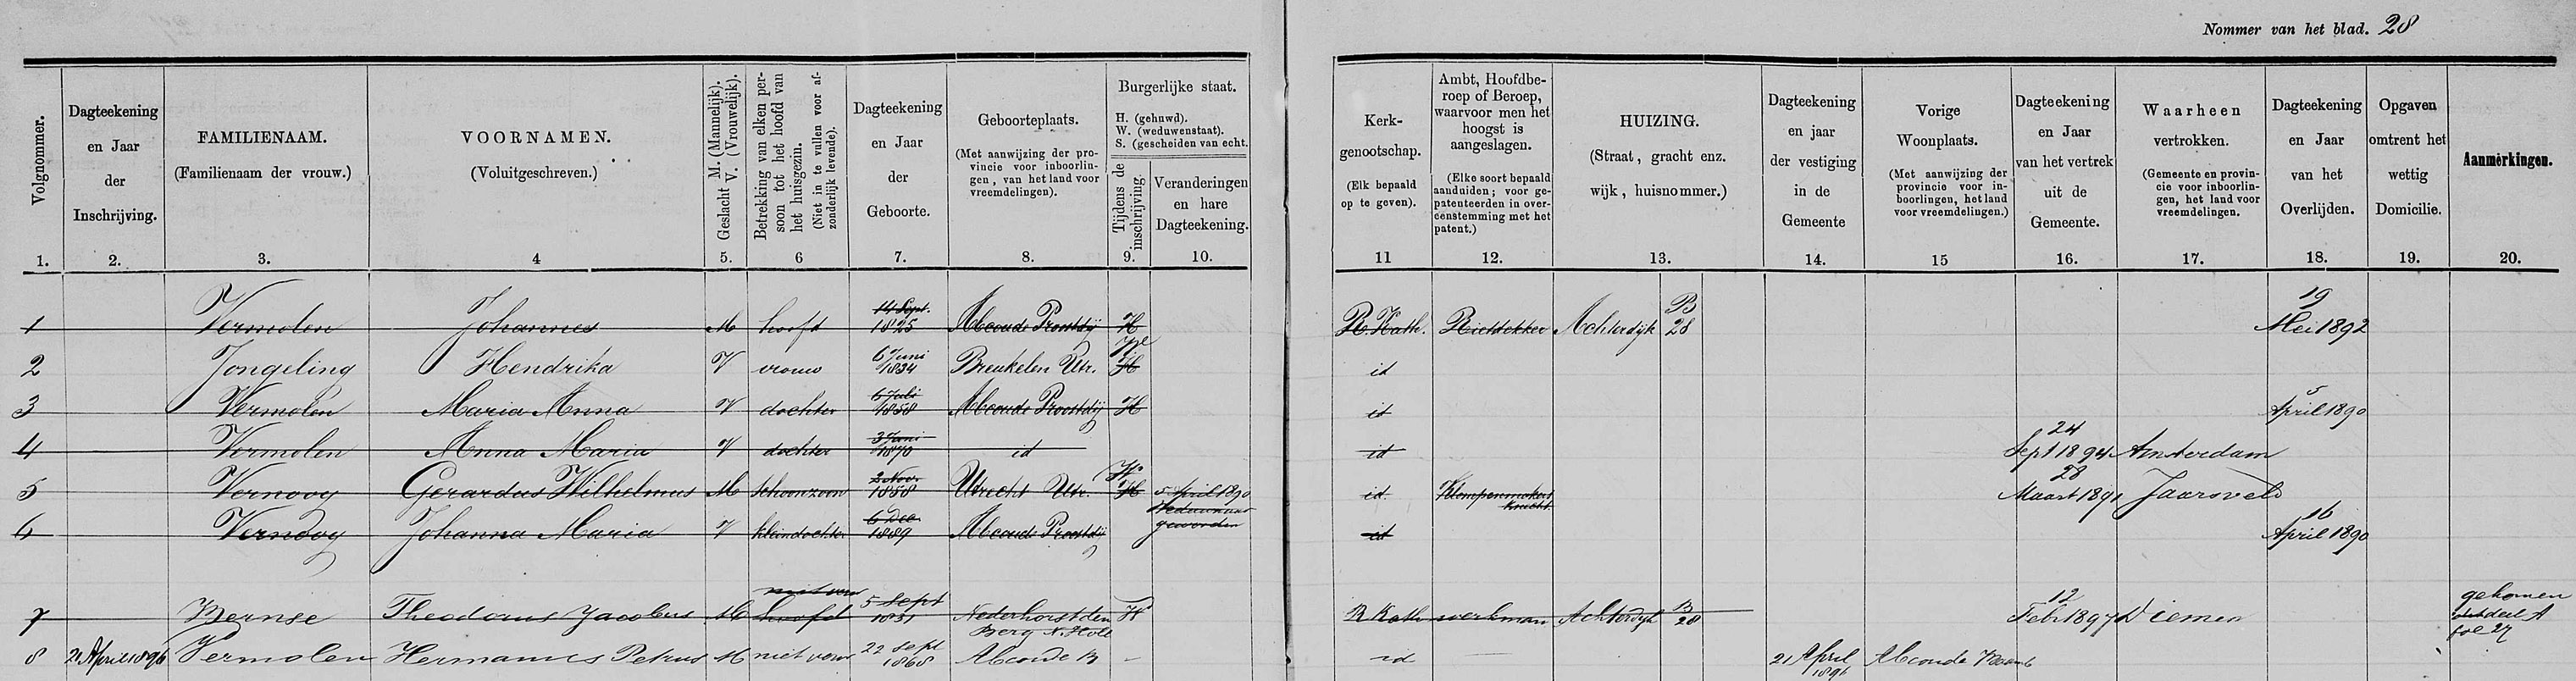 Nommer van het blad. 28
Volgnommer.
Dagteekening
en Jaar
der
Inschrijving.
FAMILIENAAM.
(Familienaam der vrouw.)
VOORNAMEN.
(Voluitgeschreven.)
Geslacht M. (Mannelijk). V. (Vrouwelijk).
Betrekking van elken per-
soon tot het hoofd van
het huisgezin.
(Niet in te vullen voor af-
zonderlijk levende).
Dagteekening
en Jaar
der
Geboorte.
Geboorteplaats.
(Met aanwijzing der pro-
vincie voor inboorlin-
gen, van het land voor
vreemdelingen).
Burgerlijke staat.
H. (gehuwd).
W. (weduwenstaat).
S. (gescheiden van echt.
Tijdens de
inschrijving.
Veranderingen
en hare
Dagteekening.
Kerk-
genootschap.
(Elk bepaald
op te geven).
Ambt, Hoofdbe-
roep of Beroep,
waarvoor men het
hoogst is
aangeslagen.
(Elke soort bepaald
aanduiden; voor ge-
patenteerden in over-
eenstemming met het
patent.)
HUIZING.
(Straat, gracht enz.
wijk, huisnommer.)
Dagteekening
en jaar
der vestiging
in de
Gemeente
Vorige
Woonplaats.
(Met aanwijzing der
provincie voor in-
boorlingen, het land
voor vreemdelingen.)
Dagteekening
en Jaar
van het vertrek
uit de
Gemeente.
Waarheen
vertrokken.
(Gemeente en provin-
cie voor inboorlin-
gen, het land voor
vreemdelingen.
Dagteekening
en Jaar
van het
Overlijden.
Opgaven
omtrent het
wettig
Domicilie.
Aanmerkingen.
1. 2. 3. 4 5. 6 7. 8. 9. 10. 11 12. 13. 14. 15 16. 17. 18. 19. 20.
1 Vermolen Johannes M hoofd 14 Sept. 1825 Abcoude Proostdij H R. Kath. Rietdekker Achterdijk B 28 19 Mei 1892
2 Jongeling Hendrika V vrouw 6 Juni 1834 Breukelen Utr. H id
3 Vermolen Maria Anna V dochter 6 Juli 1858 Abcoude Proostdij H id 5 April 1890
4 Vermolen Anna Maria V dochter 3 Juni 1870 id id 24 Sept 1894 Amsterdam
5 Vernooy Gerardus Wilhelmus M Schoonzoon 2 Nov. 1858 Utrecht Utr. H 5 April 1890 Weduwnaar geworden id Klompenmakers knecht 28 Maart 1891 Jaarsveld
6 Vernooy Johanna Maria V kleindochter 6 Dec 1889 Abcoude Proostdij id 16 April 1890
7 Bernse Theodorus Jacobus M hoofd 5 Sept 1851 Nederhorst den Berg N. Holl H R Kath werkman Achterdyk B 28 12 Febr 1897 Diemen gekomen deel A fol 27
8 21 April 1896 Vermolen Hermanus Petrus M niet verw 22 Sept 1868 Abcoude B - id 21 April 1896 Abcoude Baamb